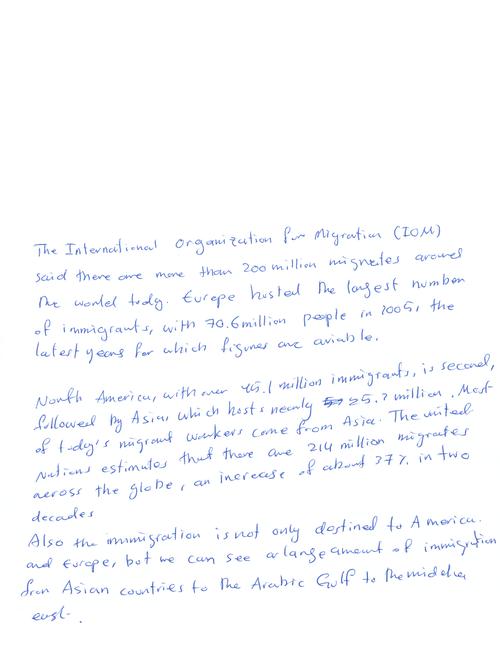 The International Organization for Migration (IOM)
said there are more than 200 million migrates around
the world today. Europe hosted the largest number
of immigrants, with 70.6 million people in 2005, the
latest years for which figures are aviable.
North America, with over 45.1 million immigrants, is second,
followed by Asia, which hosts nearly 25.3 million. Most
of today's migrant workers come from Asia. The united
Nations estimates that there are 214 million migrates
across the globe, an increase of about 37% in two
decades
Also the immigration is not only destined to America.
and Europe, but we can see a large amount of immigration
from Asian countries to the Arabic Gulf to the middle
east.